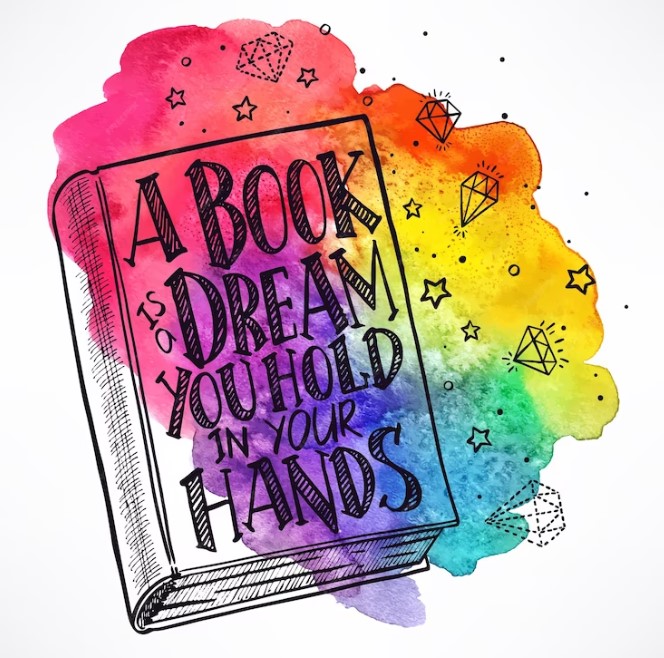 A BOOK
IS a DREAM
YOU HOLD
IN YOUR
HANDS